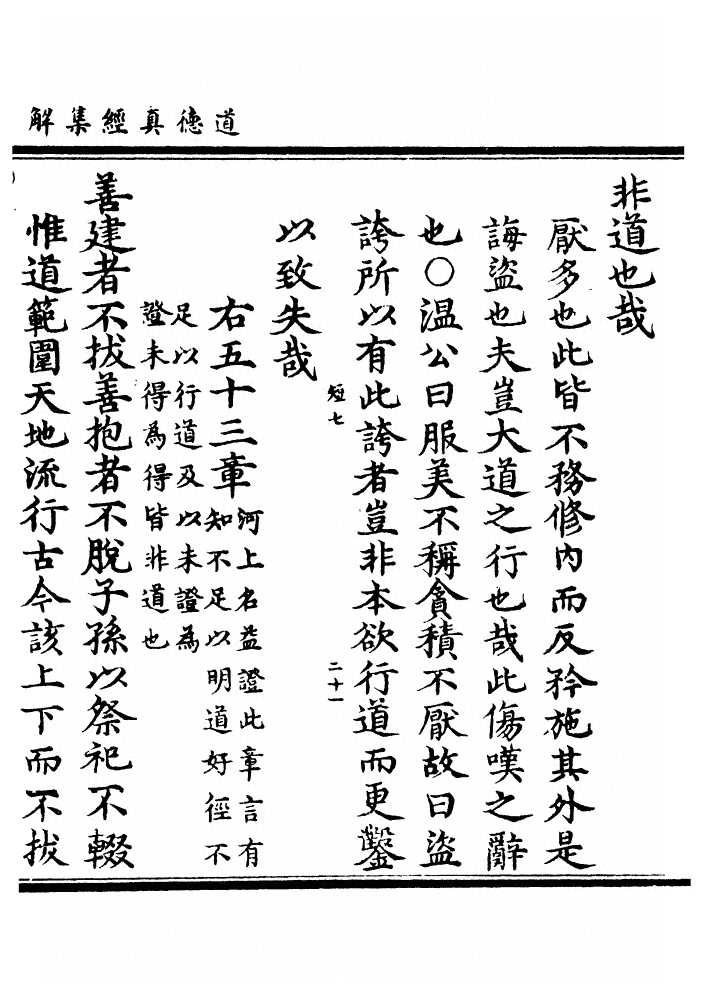 道德真經集解
非道也哉
厭多也此皆不務修內而反矜施其外是
誨盜也夫豈大道之行也哉此傷嘆之辭
也○溫公曰服美不稱貪積不厭故曰盜
誇所以有此誇者豈非本欲行道而更鑿
短七
二十一
以致失哉
右五十三章河上名益證此章言有
知不足以明道好徑不
足以行道及以未證為
證未得為得皆非道也
善建者不拔善抱者不脫子孫以祭祀不輟
惟道範圍天地流行古今該上下而不拔